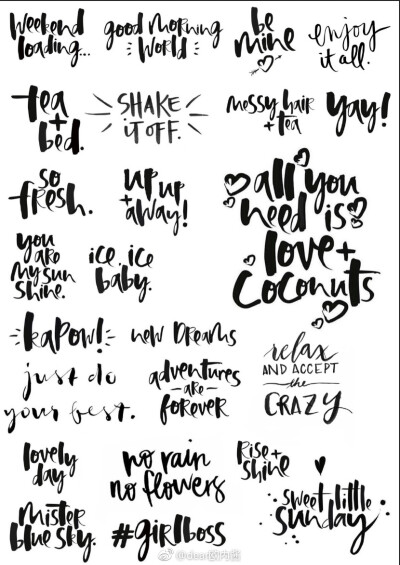 Weekend
loading...
good morning
world
be
mine
enjoy
it all.
tea
+
bed.
SHAKE
IT OFF.
messy hair
+ tea
yay!
so
fresh.
up up
+ away!
all you
need is
love +
coconuts
you
are
my sun
shine.
ice, ice
baby.
kapow!
new dreams
just do
your best.
adventures
are
forever
relax
AND ACCEPT
the
CRAZY
lovely
day
no rain
no flowers
Rise +
shine
sweet little
sunday
mister
blue sky.
#girlboss